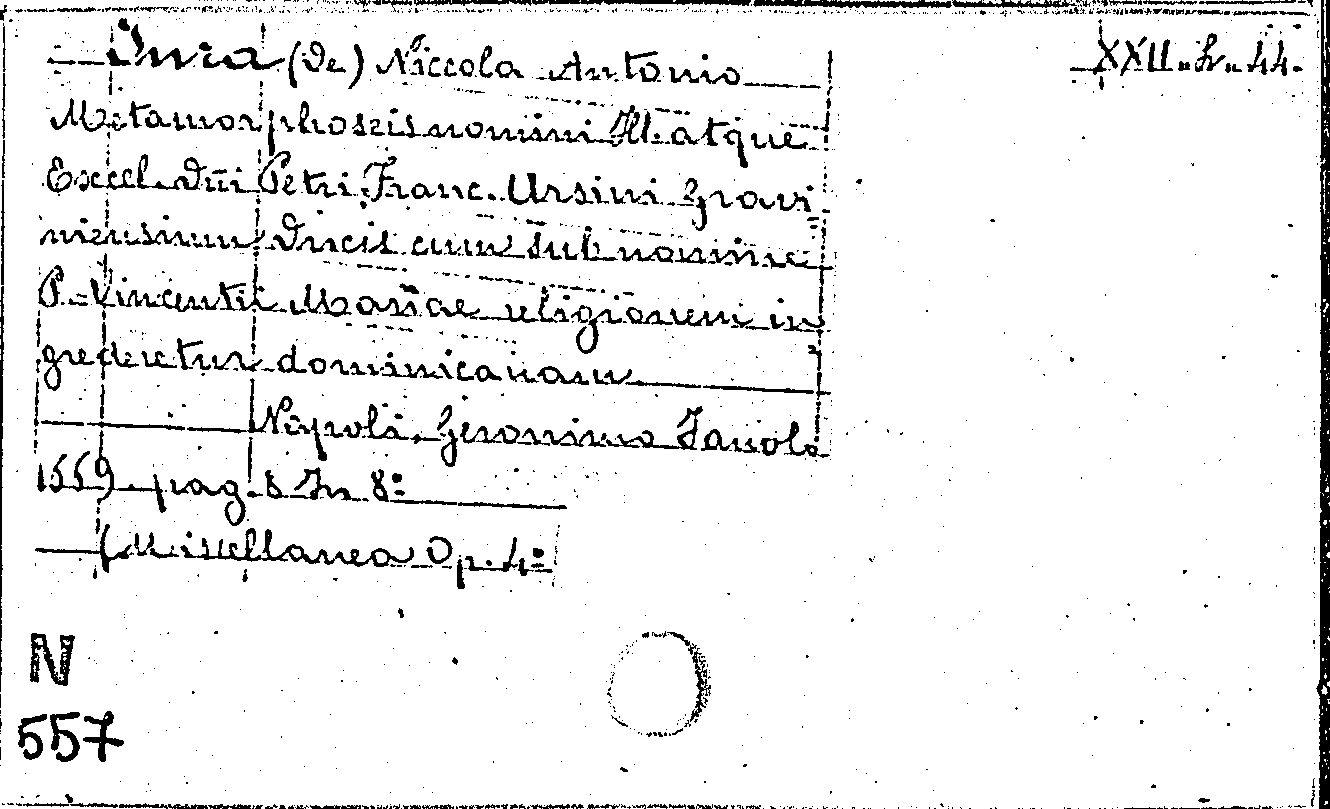 Jura (De) Niccola Antonio
XXII. Fr. 44.
Metamorphoseis nomini Ill. atque
Excel. Dni Petri Franc. Ursini Gravi
niensium Ducis cum sub nomine
P. Vincentii Mariae religionem in
grederetur dominicanam
Napoli, Geronimo Fasolo
1559 pag. 8 In 8º
(Miscellanea Op. 4º
N
557